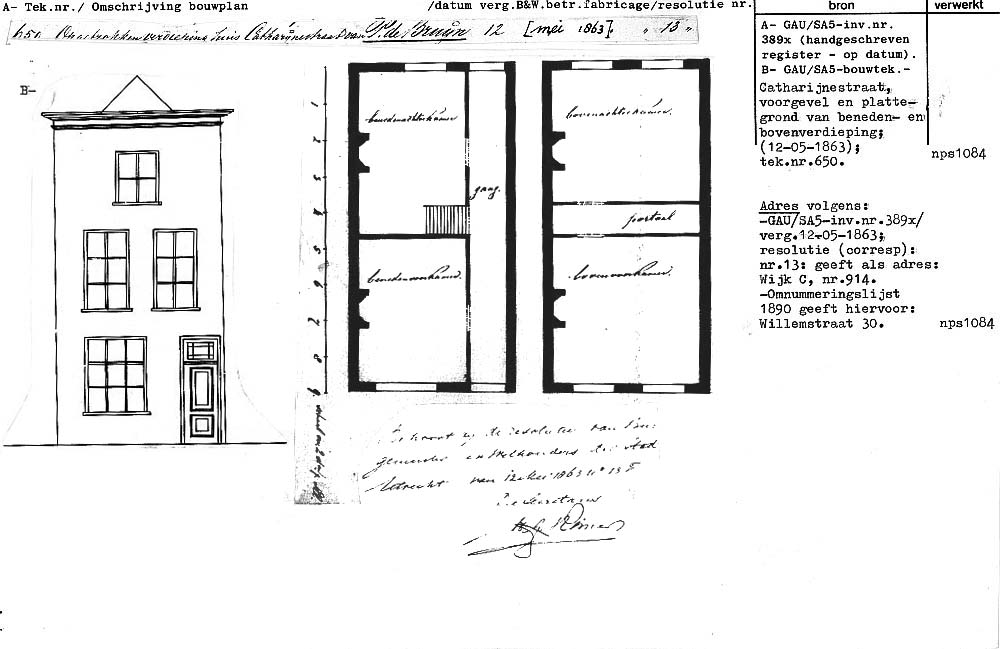 A- Tek.nr./ Omschrijving bouwplan /datum verg.B&W.betr.fabricage/resolutie nr. bron verwerkt
650. verdieping huis Catharijnestraat van P. de Bruijn 12 [mei 1863]. " 13 "
B-
benedenachterkamer
gang.
benedenvoorkamer.
bovenachterkamer.
portaal
bovenvoorkamer.
1
2
3
4
5
6
7
8
9
Behoort bij de resolutie van Bur-
gemeester en Wethouders der stad
Utrecht van 12 Mei 1863 n° 13
De Secretaris
A- GAU/SA5-inv.nr.
389x (handgeschreven
register - op datum).
B- GAU/SA5-bouwtek.-
Catharijnestraat,
voorgevel en platte-
grond van beneden- en
bovenverdieping;
(12-05-1863);
tek.nr.650.
nps1084
Adres volgens:
-GAU/SA5-inv.nr.389x/
verg.12-05-1863;
resolutie (corresp):
nr.13: geeft als adres:
Wijk C, nr.914.
-Omnummeringslijst
1890 geeft hiervoor:
Willemstraat 30.
nps1084